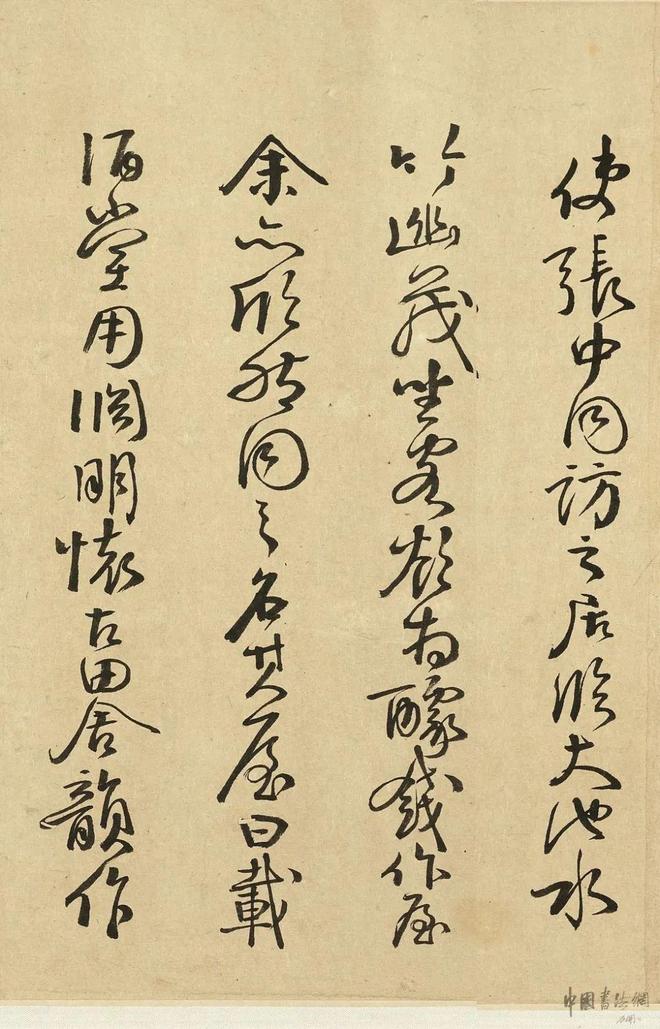 使張中同訪之居臨大池水
竹幽茂坐客欲為醵錢作屋
余亦欣然同之名其屋曰載
酒堂用淵明懷古田舍韻作
中國書法網